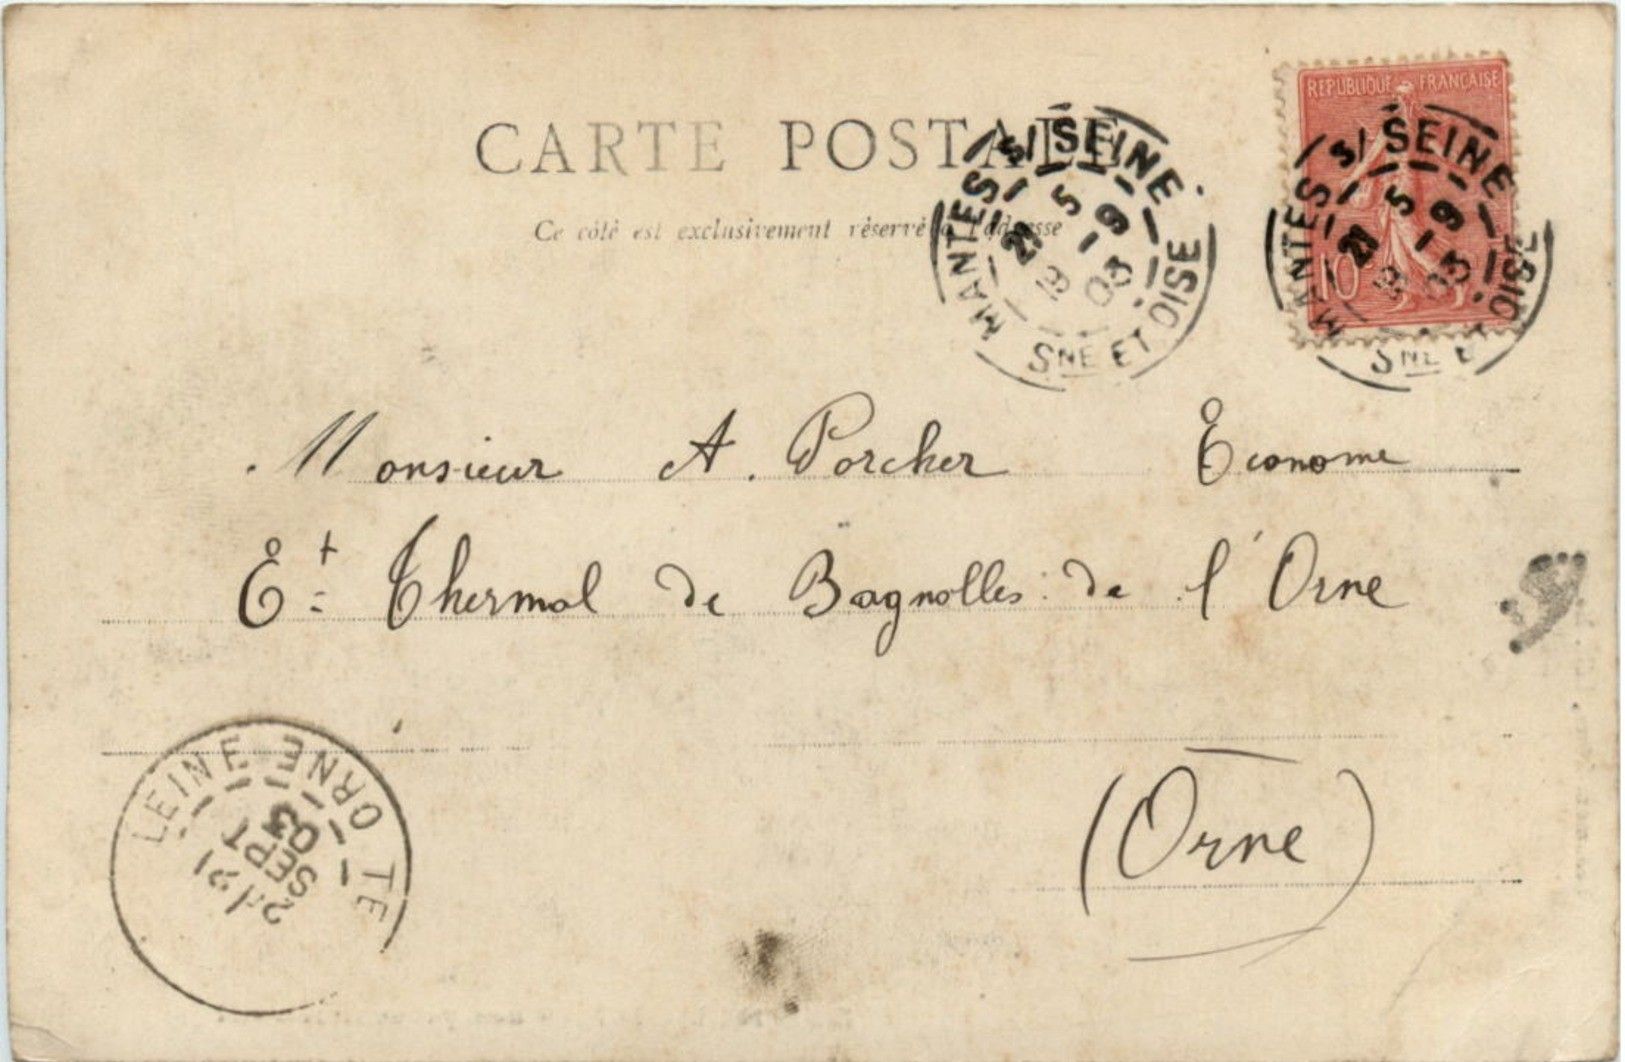 CARTE POSTALE
Ce côté est exclusivement réservé à l'adresse
REPUBLIQUE FRANÇAISE
10
MANTES S/ SEINE
5
21 - 9
19 03
SNE ET OISE
MANTES S/ SEINE
5
21 - 9
19 03
SNE ET OISE
Monsieur A. Porcher Econome
Et Thermal de Bagnolles de l'Orne
(Orne)
ORNE
21
SEPT
03